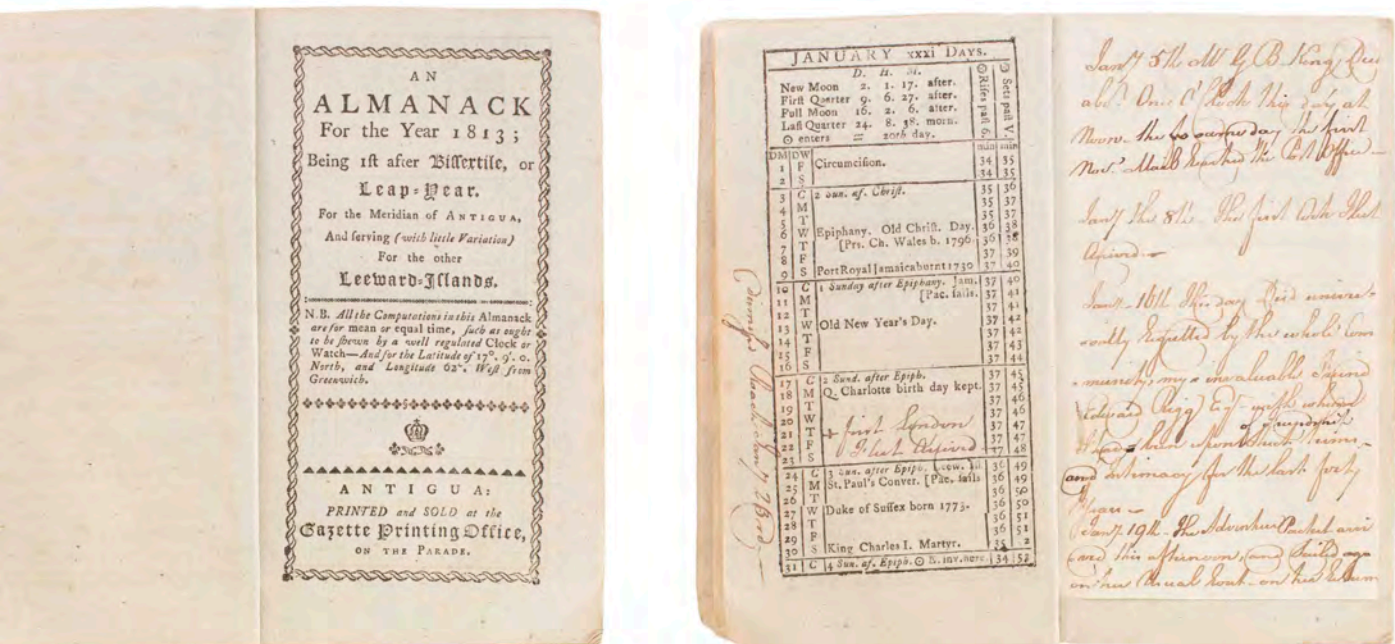 AN
ALMANACK
For the Year 1813;
Being 1ſt after Biſſextile, or
Leap=Year.
For the Meridian of ANTIGUA,
And ſerving (with little Variation)
For the other
Leeward=Iſlands.
N.B. All the Computations in this Almanack
are for mean or equal time, ſuch as ought
to be ſhewn by a well regulated Clock or
Watch—And for the Latitude of 17°. 9'. 0.
North, and Longitude 62°. Weſt from
Greenwich.
ANTIGUA:
PRINTED and SOLD at the
Gazette Printing Office,
ON THE PARADE.
JANUARY xxxi DAYS.
D. H. M.
New Moon 2. 1. 17. after.
Firſt Quarter 9. 6. 27. after.
Full Moon 16. 2. 6. after.
Laſt Quarter 24. 8. 38. morn.
☉ enters ♒ 20th day.
☉ Riſes paſt 6.
☉ Sets paſt V.
DM DW min min
1 F Circumciſion. 34 35
2 S 34 35
3 C 2 Sun. af. Chriſt. 35 36
4 M 35 37
5 T 35 37
6 W Epiphany. Old Chriſt. Day. 36 38
7 T [Prs. Ch. Wales b. 1796 36 38
8 F 37 39
9 S Port Royal Jamaica burnt 1730 37 40
10 C 1 Sunday after Epiphany. Jam. 37 40
11 M [Pac. ſails. 37 41
12 T 37 41
13 W Old New Year's Day. 37 42
14 T 37 42
15 F 37 43
16 S 37 44
17 C 2 Sund. after Epiph. 37 45
18 M Q. Charlotte birth day kept. 37 45
19 T 37 46
20 W 37 46
21 T + first London 37 47
22 F Fleet Arrived 37 47
23 S 37 48
24 C 3 Sun. after Epiph. 36 49
25 M St. Paul's Conver. [Pac. ſails 36 49
26 T 36 50
27 W Duke of Suſſex born 1773. 36 50
28 T 36 51
29 F 36 51
30 S King Charles I. Martyr. 35 2
31 C 4 Sun. af. Epiph. ☉ E. inv. here. 34 52
Jany 5th Mr G B King Died
abt One O'Clock this day at
Noon - the same day the first
Novr Mail reached the Post Office -
Jany the 8th The first Cork Fleet
Arrived -
Jany 16th This day Died univer-
sally Regretted by the whole Com
-munity, my invaluable Friend
Edward Esqr with whom
I had been upon terms of friendship
and intimacy for the last forty
Years -
Jany 19th The Packet arri
ved this afternoon, and Sailed aga
on her Usual Rout - on her Return